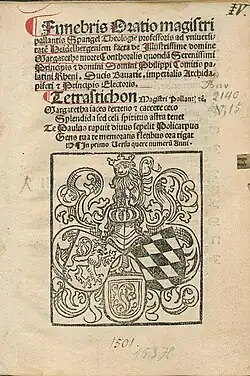 IV.
Funebris Oratio magistri
pallantis Spangel Theologie professoris ad vniuersi-
tatē Heidelbergensem facta de Illustrissime domine
Margarethe morte Conthoralis quondā Serenissimi
Principis et domini Domini Philippi Comitis pa-
latini Rheni, Ducis Bauarie, imperialis Archida-
piferi et Principis Electoris.
Tetrastichon Magistri Pallant: ꝛc̄.
Margaretha iaces texerio et carcere ceco
Splendida sed celi spiritus astra tenet
Te Paulus rapuit vinus sepelit Policarpus
Gens tua te memorans flentibus ora rigat
In primo Versu quere numerū Anni.
Bav
2140
IV, 15
R
1501.
153 H